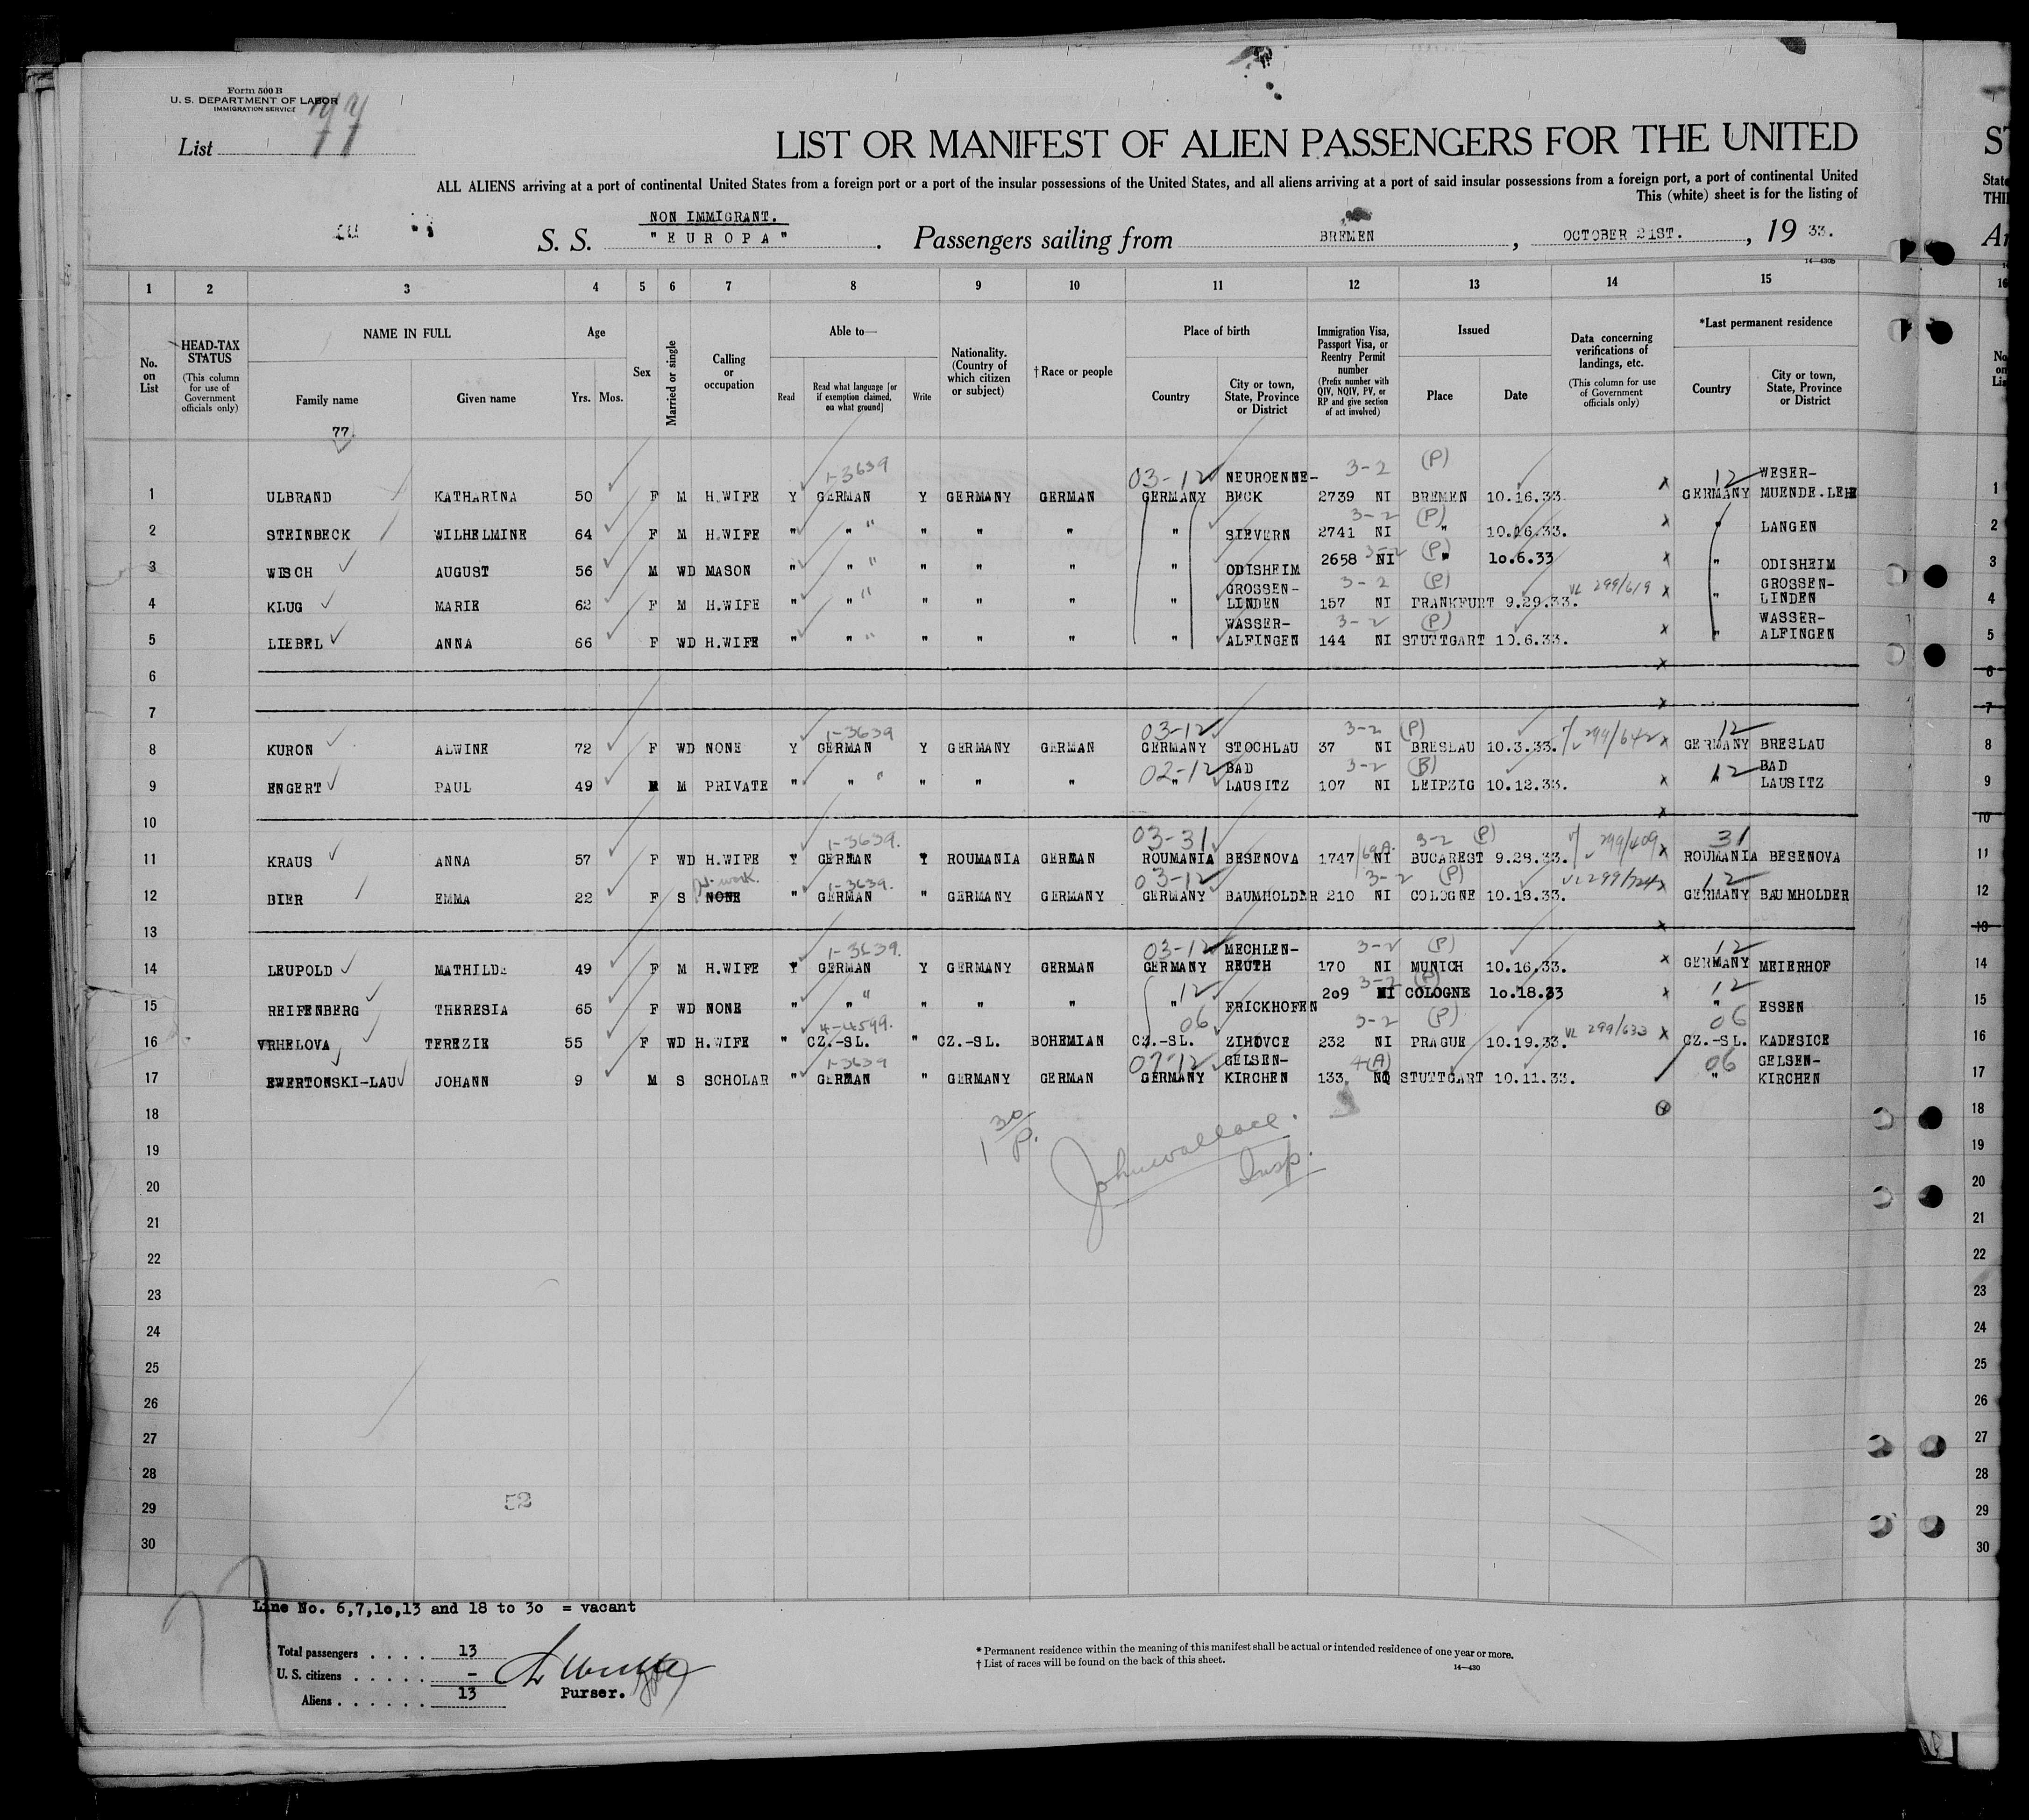 Form 500 B
U. S. DEPARTMENT OF LABOR
IMMIGRATION SERVICE
List 77
LIST OR MANIFEST OF ALIEN PASSENGERS FOR THE UNITED
ALL ALIENS arriving at a port of continental United States from a foreign port or a port of the insular possessions of the United States, and all aliens arriving at a port of said insular possessions from a foreign port, a port of continental United
This (white) sheet is for the listing of
NON IMMIGRANT.
S. S. "EUROPA". Passengers sailing from BREMEN, OCTOBER 21ST., 19 33.
14—430b
1 2 3 4 5 6 7 8 9 10 11 12 13 14 15 16
No. on List
HEAD-TAX STATUS (This column for use of Government officials only)
NAME IN FULL
Family name Given name
Age Yrs. Mos.
Sex
Married or single
Calling or occupation
Able to—
Read Read what language [or if exemption claimed, on what ground] Write
Nationality. (Country of which citizen or subject)
†Race or people
Place of birth
Country City or town, State, Province or District
Immigration Visa, Passport Visa, or Reentry Permit number (Prefix number with QIV, NQIV, PV, or RP and give section of act involved)
Issued
Place Date
Data concerning verifications of landings, etc. (This column for use of Government officials only)
*Last permanent residence
Country City or town, State, Province or District
77
1-3639 03-12 NEUROENNE- 3-2 (P) 12 WESER-
1 ULBRAND KATHARINA 50 F M H.WIFE Y GERMAN Y GERMANY GERMAN GERMANY BECK 2739 NI BREMEN 10.16.33. x GERMANY MUENDE.LEHE 1
3-2 (P)
2 STEINBECK WILHELMINE 64 F M H.WIFE " " " " " " " SIEVERN 2741 NI " 10.16.33. x " LANGEN 2
3-2 (P)
3 WISCH AUGUST 56 M WD MASON " " " " " " " ODISHEIM 2658 NI " 10.6.33 x " ODISHEIM 3
GROSSEN- 3-2 (P) VL 299/619 GROSSEN-
4 KLUG MARIE 62 F M H.WIFE " " " " " " " LINDEN 157 NI FRANKFURT 9.29.33. x " LINDEN 4
WASSER- 3-2 (P) WASSER-
5 LIEBEL ANNA 66 F WD H.WIFE " " " " " " " ALFINGEN 144 NI STUTTGART 10.6.33. x " ALFINGEN 5
6 x 6
7 x 7
1-3639 03-12 3-2 (P) 299/642 12
8 KURON ALWINE 72 F WD NONE Y GERMAN Y GERMANY GERMAN GERMANY STOCHLAU 37 NI BRESLAU 10.3.33. x GERMANY BRESLAU 8
02-12 BAD 3-2 (B) 12 BAD
9 ENGERT PAUL 49 M M PRIVATE " " " " " " " LAUSITZ 107 NI LEIPZIG 10.12.33. x " LAUSITZ 9
10 x 10
1-3639. 03-31 3-2 (P) 299/409 31
11 KRAUS ANNA 57 F WD H.WIFE Y GERMAN Y ROUMANIA GERMAN ROUMANIA BESENOVA 1747 NI BUCAREST 9.28.33. x ROUMANIA BESENOVA 11
1-3639. 03-12 3-2 (P) 12
12 BIER EMMA 22 F S NONE " GERMAN " GERMANY GERMANY GERMANY BAUMHOLDER 210 NI COLOGNE 10.18.33. x GERMANY BAUMHOLDER 12
13 x 13
1-3639. 03-12 MECHLEN- 3-2 (P) 12
14 LEUPOLD MATHILDE 49 F M H.WIFE Y GERMAN Y GERMANY GERMAN GERMANY REUTH 170 NI MUNICH 10.16.33. x GERMANY MEIERHOF 14
12 3-2 (P) 12
15 REIFENBERG THERESIA 65 F WD NONE " " " " " " " FRICKHOFEN 209 NI COLOGNE 10.18.33 x " ESSEN 15
4-4599. 06 3-2 (P) VL 299/633 06
16 VRHELOVA TEREZIE 55 F WD H.WIFE " CZ.-SL. " CZ.-SL. BOHEMIAN CZ.-SL. ZIHOVCE 232 NI PRAGUE 10.19.33. x CZ.-SL. KADESICE 16
1-3639 07-12 GELSEN- 4(A) 06 GELSEN-
17 EWERTONSKI-LAU JOHANN 9 M S SCHOLAR " GERMAN " GERMANY GERMAN GERMANY KIRCHEN 133 NQ STUTTGART 10.11.33. " KIRCHEN 17
18 18
19 1 30/P. John Wallace. Insp. 19
20 20
21 21
22 22
23 23
24 24
25 25
26 26
27 27
28 28
29 52 29
30 30
Line No. 6,7,10,13 and 18 to 30 = vacant
Total passengers . . . . 13
U. S. citizens . . . . . . –
Aliens . . . . . . 13
Purser.
* Permanent residence within the meaning of this manifest shall be actual or intended residence of one year or more.
† List of races will be found on the back of this sheet.
14—430